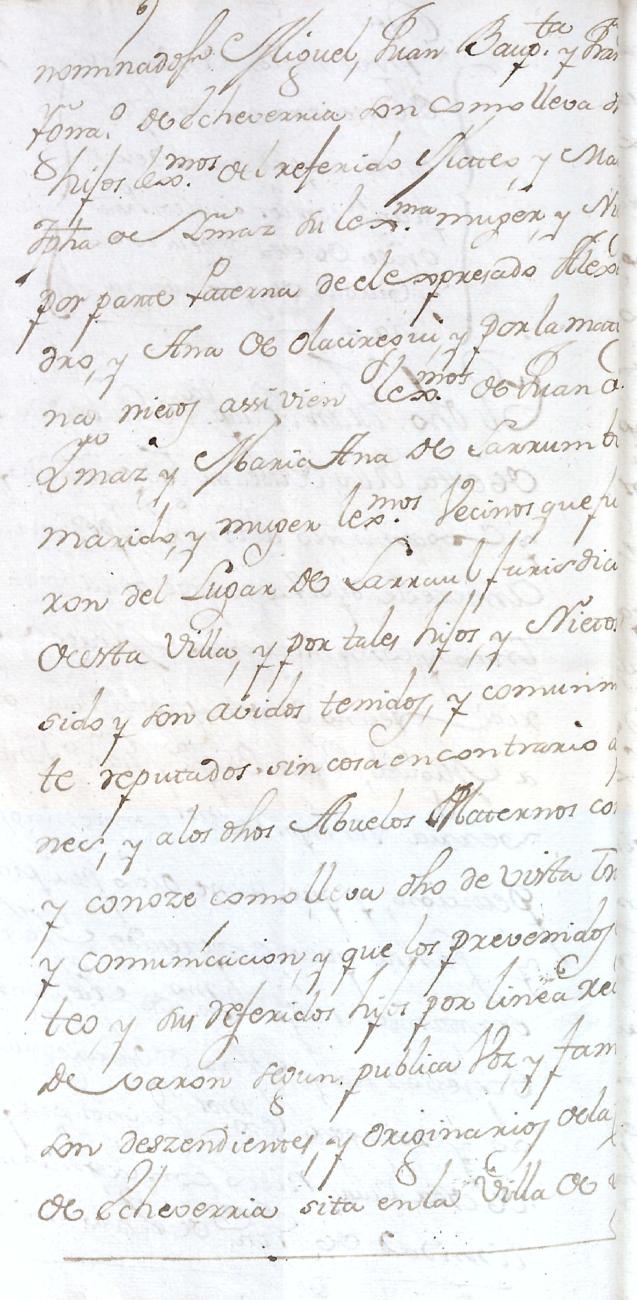 nominados Miguel, Juan Baup.ta y Fran
de Echeverria son como lleva d
hijos lex.mos del referido Mateo, y Ma
de Ymaz su lex.ma muger, y Ni
por parte Paterna de el expresado Alex
dro, y Ana de Olaciregui, y por la mat
na nietos assi vien lex.mos de Juan
Ymaz y Maria Ana de Larrum
marido, y muger lex.mos Vecinos que fu
ron del Lugar de Larraul Jurisdic
de esta Villa, y por tales hijos, y Nietos
sido y son avidos tenidos, y comunm
te reputados sin cosa en contrario a
nec, y a los dhos Abuelos Maternos co
y conoze como lleva dho de vista tr
y comunicacion, y que los prevenidos
teo, y sus referidos hijos por linea re
de varon segun publica Voz y fam
son deszendientes, y Originarios de la
de Echeverria sita en la Villa de